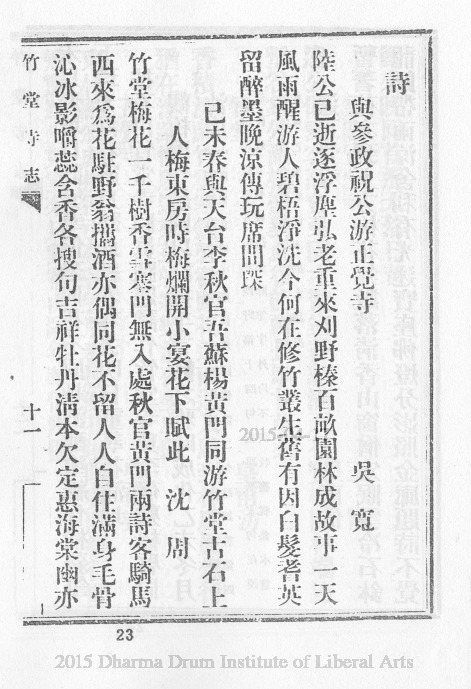 詩
與參政祝公游正覺寺　吳寬
陸公已逝逐浮塵弘老重來刈野榛百畝園林成故事一天
風雨醒游人碧梧淨洗今何在修竹叢生舊有因白髮耆英
留醉墨晚涼傳玩席間琛
己未春與天台李秋官吾蘇楊黃門同游竹堂古石上
人梅東房時梅爛開小宴花下賦此　沈周
竹堂梅花一千樹香雪塞門無入處秋官黃門兩詩客騎馬
西來爲花駐野翁攜酒亦偶同花不留人人自住滿身毛骨
沁冰影嚼蕊含香各搜句吉祥牡丹淸本欠定惠海棠幽亦
竹堂寺志
十一
23
2015
2015 Dharma Drum Institute of Liberal Arts